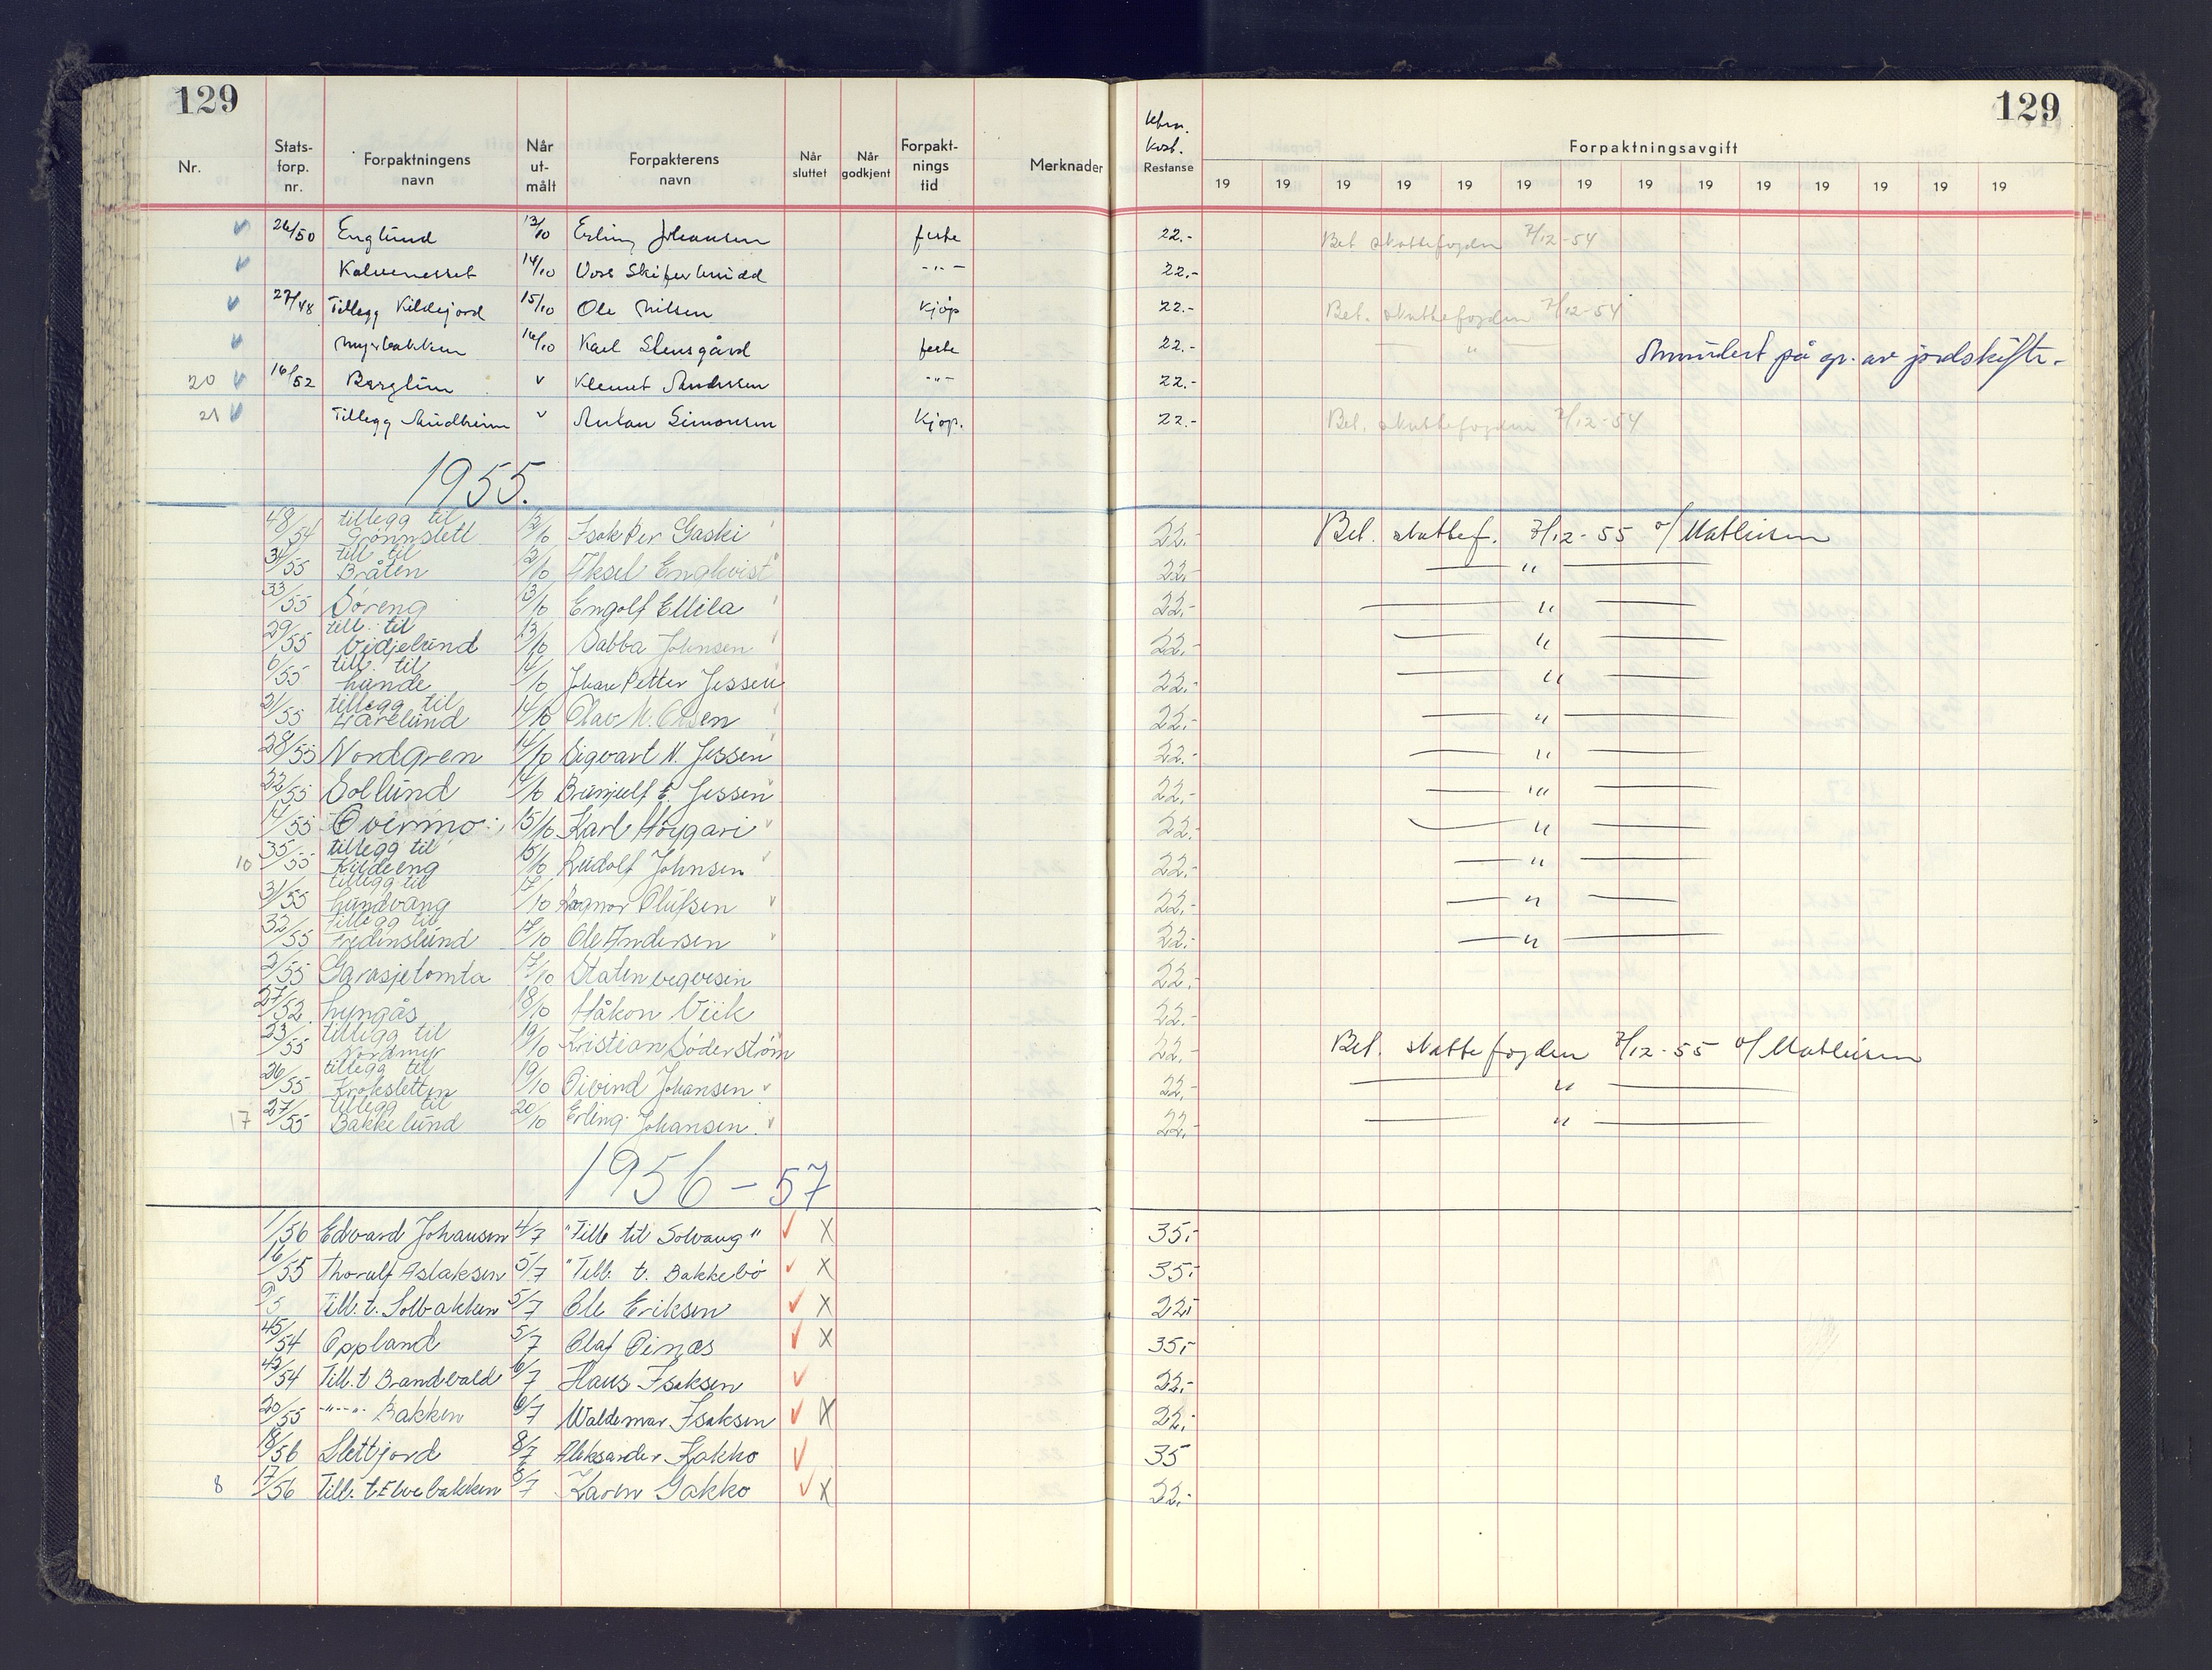 129
129
Nr. Stats-forp. nr. Forpaktningens navn Når ut-målt Forpakterens navn Når sluttet Når godkjent Forpakt-nings tid Merknader Restanse Forpaktningsavgift
19 19 19 19 19 19 19 19 19 19 19 19 19 19
26/50 Englund 13/10 Erling Johansen feste 22.- Bet skattefogden 7/12-54
14/10 Voss Skiferbrudd -"- 22.-
27/48 Tillegg Kildejord 15/10 Ole Nilsen Kjöp 22.- Bet. skattefogden 7/12-54
Myrbakken 16/10 Karl Stensgård feste 22.- " på gr. av jordskifte.
20 16/52 Berglim v Klemet Andersen -"- 22.-
21 Tillegg v Anton Simonsen Kjöp. 22.- Bet. skattefogden 7/12-54
1955.
48/54 tillegg til Grönnslett 12/10 Isak Per Gaski 22.- Bet. skattef. 7/12-55 o/ Mathisen
till til Bråten 12/10 Aksel Engkvist 22.- "
33/55 Söreng 13/10 Engolf Ellila 22.- "
29/55 till. til Vidjelund 13/10 Sabba Johnsen 22.- "
6/55 till. til Lunde 14/10 Johan Petter Jessen 22.- "
21/55 tillegg til 14/10 Olav M. Olsen 22.- "
28/55 Nordgren 14/10 Sigvart N. Jessen 22.- "
22/55 Sollund 14/10 Jessen 22.- "
14/55 Övermo 15/10 Karl Höygari 22.- "
10 35/55 tillegg til Kildeeng 15/10 Rudolf Johnsen 22.- "
31/55 tillegg til Lundvang 17/10 Ragnar Olufsen 22.- "
32/55 tillegg til Fredenslund 17/10 Ole Andersen 22.- "
2/55 Garasjetomta 17/10 Staten vegvesen 22.-
27/52 Lyngås 18/10 Håkon Viik 22.-
23/55 tillegg til Nordmyr 19/10 Kristian Söderström 22.- Bet. skattefogden 7/12-55 o/ Mathisen
26/55 tillegg til Kroksletten 19/10 Öivind Johansen 22.- "
17 27/55 tillegg til Bakkelund 20/10 Erling Johansen 22.- "
1956-57
1/56 Edvard Johansen 4/7 "Till til Solvang" X 35.-
16/55 Thoralf Aslaksen 5/7 "Till. t. Bakkebö X 35.-
Till. t. Solbakken 5/7 Ole Eriksen X 22.-
45/54 Oppland 5/7 Olaf Oinæs X 35.-
43/54 Till. t Brandvold 6/7 Hans Isaksen 22.-
20/55 -"--"- Bakken 6/7 Waldemar Isaksen X 22.-
18/56 Slettjord 8/7 Aleksander Kakko 35
8 17/56 Till. t. Elvebakken 8/7 Karen Gakko X 22.-